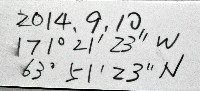 2014.9.10
171° 21' 23" W
63° 51' 23" N